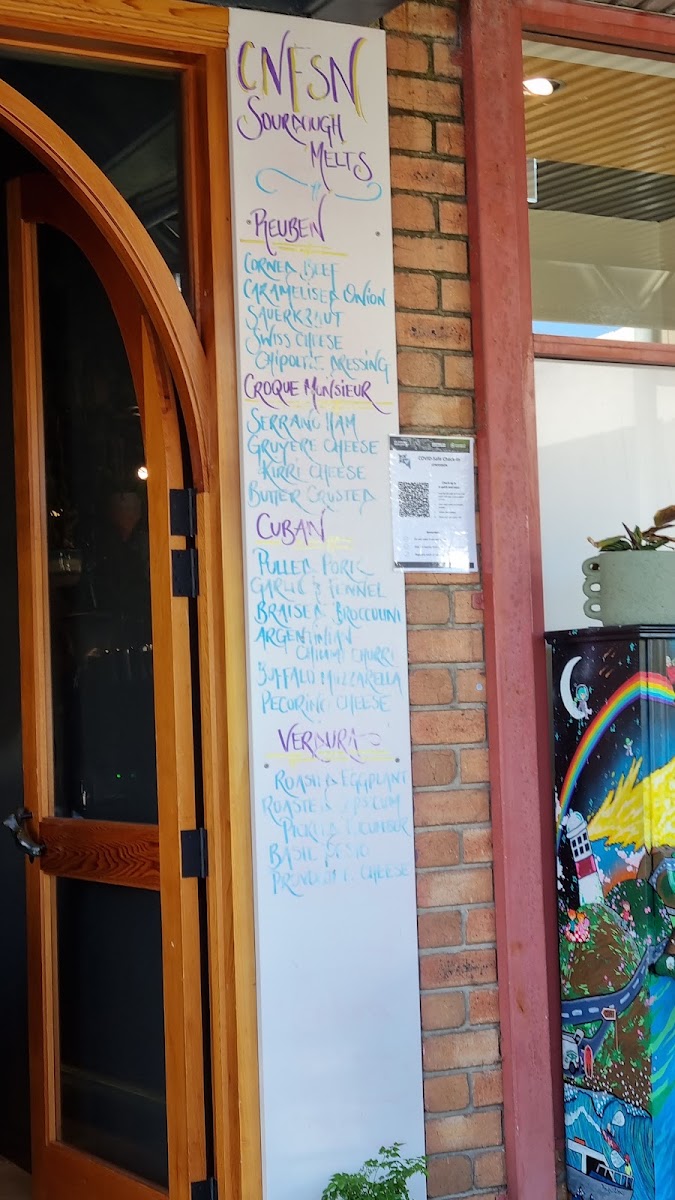 CNFSN
SOURDOUGH
MELTS
REUBEN
CORNED BEEF
CARAMELISED ONION
SAUERKRAUT
SWISS CHEESE
CHIPOTLE DRESSING
CROQUE MONSIEUR
SERRANO HAM
GRUYERE CHEESE
KIRRI CHEESE
BUTTER CRUSTED
CUBAN
PULLED PORK
GARLIC & FENNEL
BRAISED BROCCOLINI
ARGENTINIAN
CHIMMI CHURRI
BUFFALO MOZZARELLA
PECORINO CHEESE
VERDURA
ROASTED EGGPLANT
ROASTED CAPSICUM
PICKLED CUCUMBER
BASIL PESTO
PROVOLONE CHEESE
COVID Safe Check-in